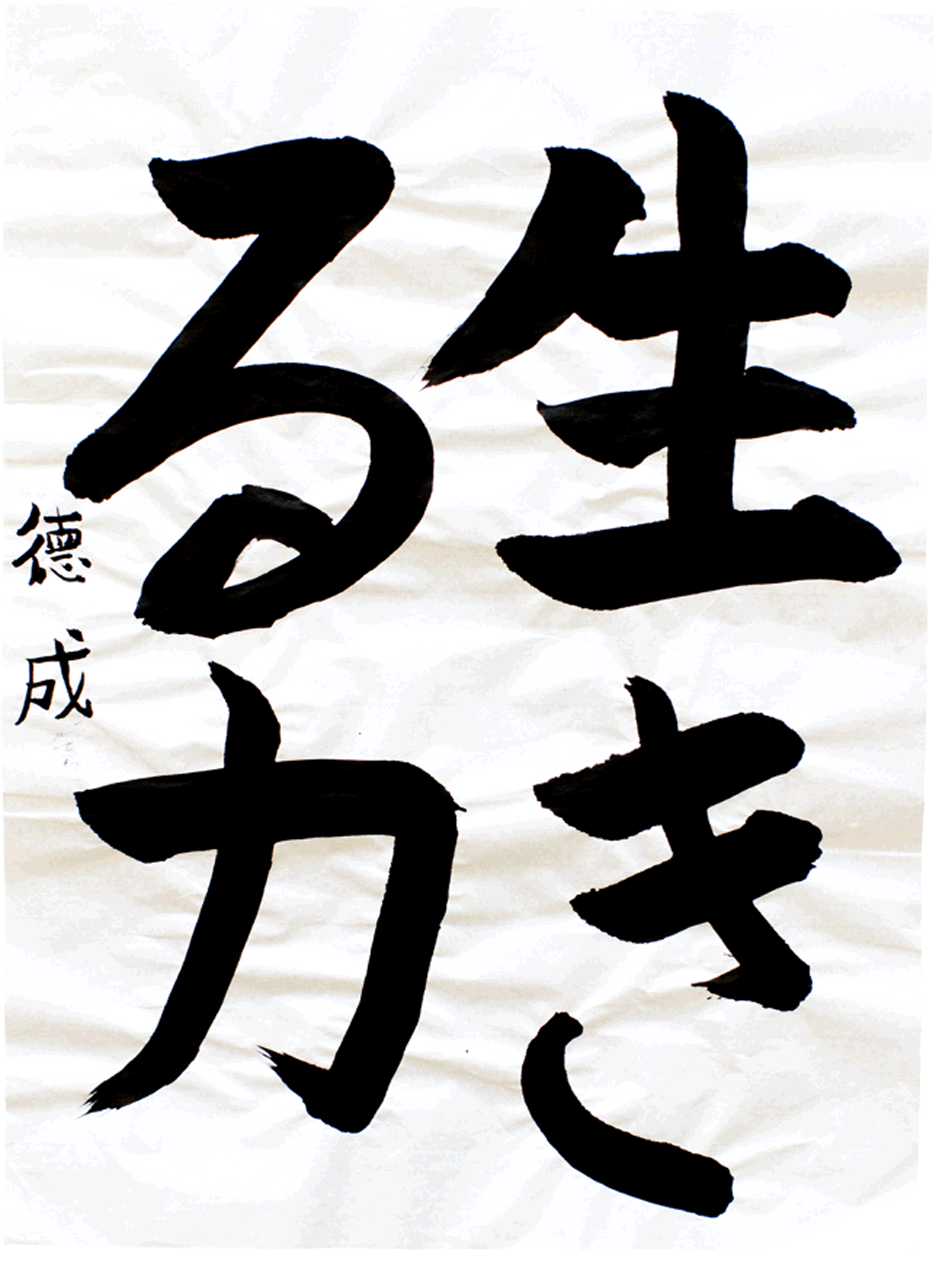 生き
る力
徳成